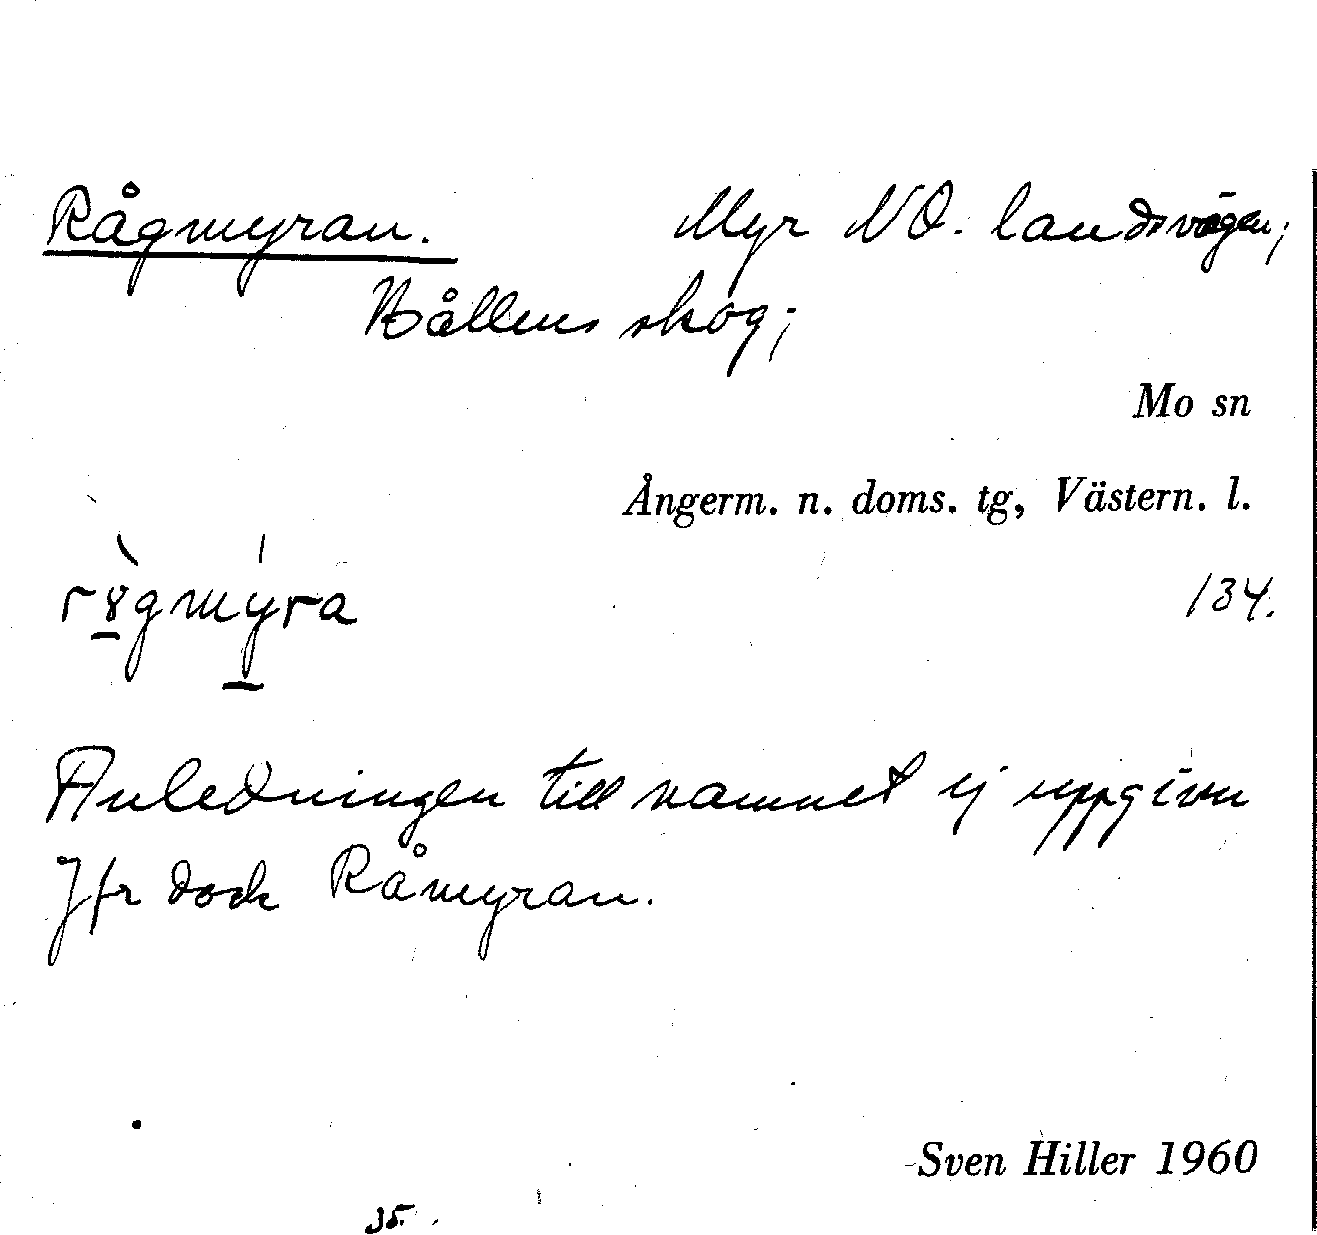 Rågmyran. Myr NO. landsvägen;
Bållens skog;
Mo sn
Ångerm. n. doms. tg, Västern. l.
134.
Anledningen till namnet ej uppgiven
Jfr dock Råmyran.
Sven Hiller 1960
35.